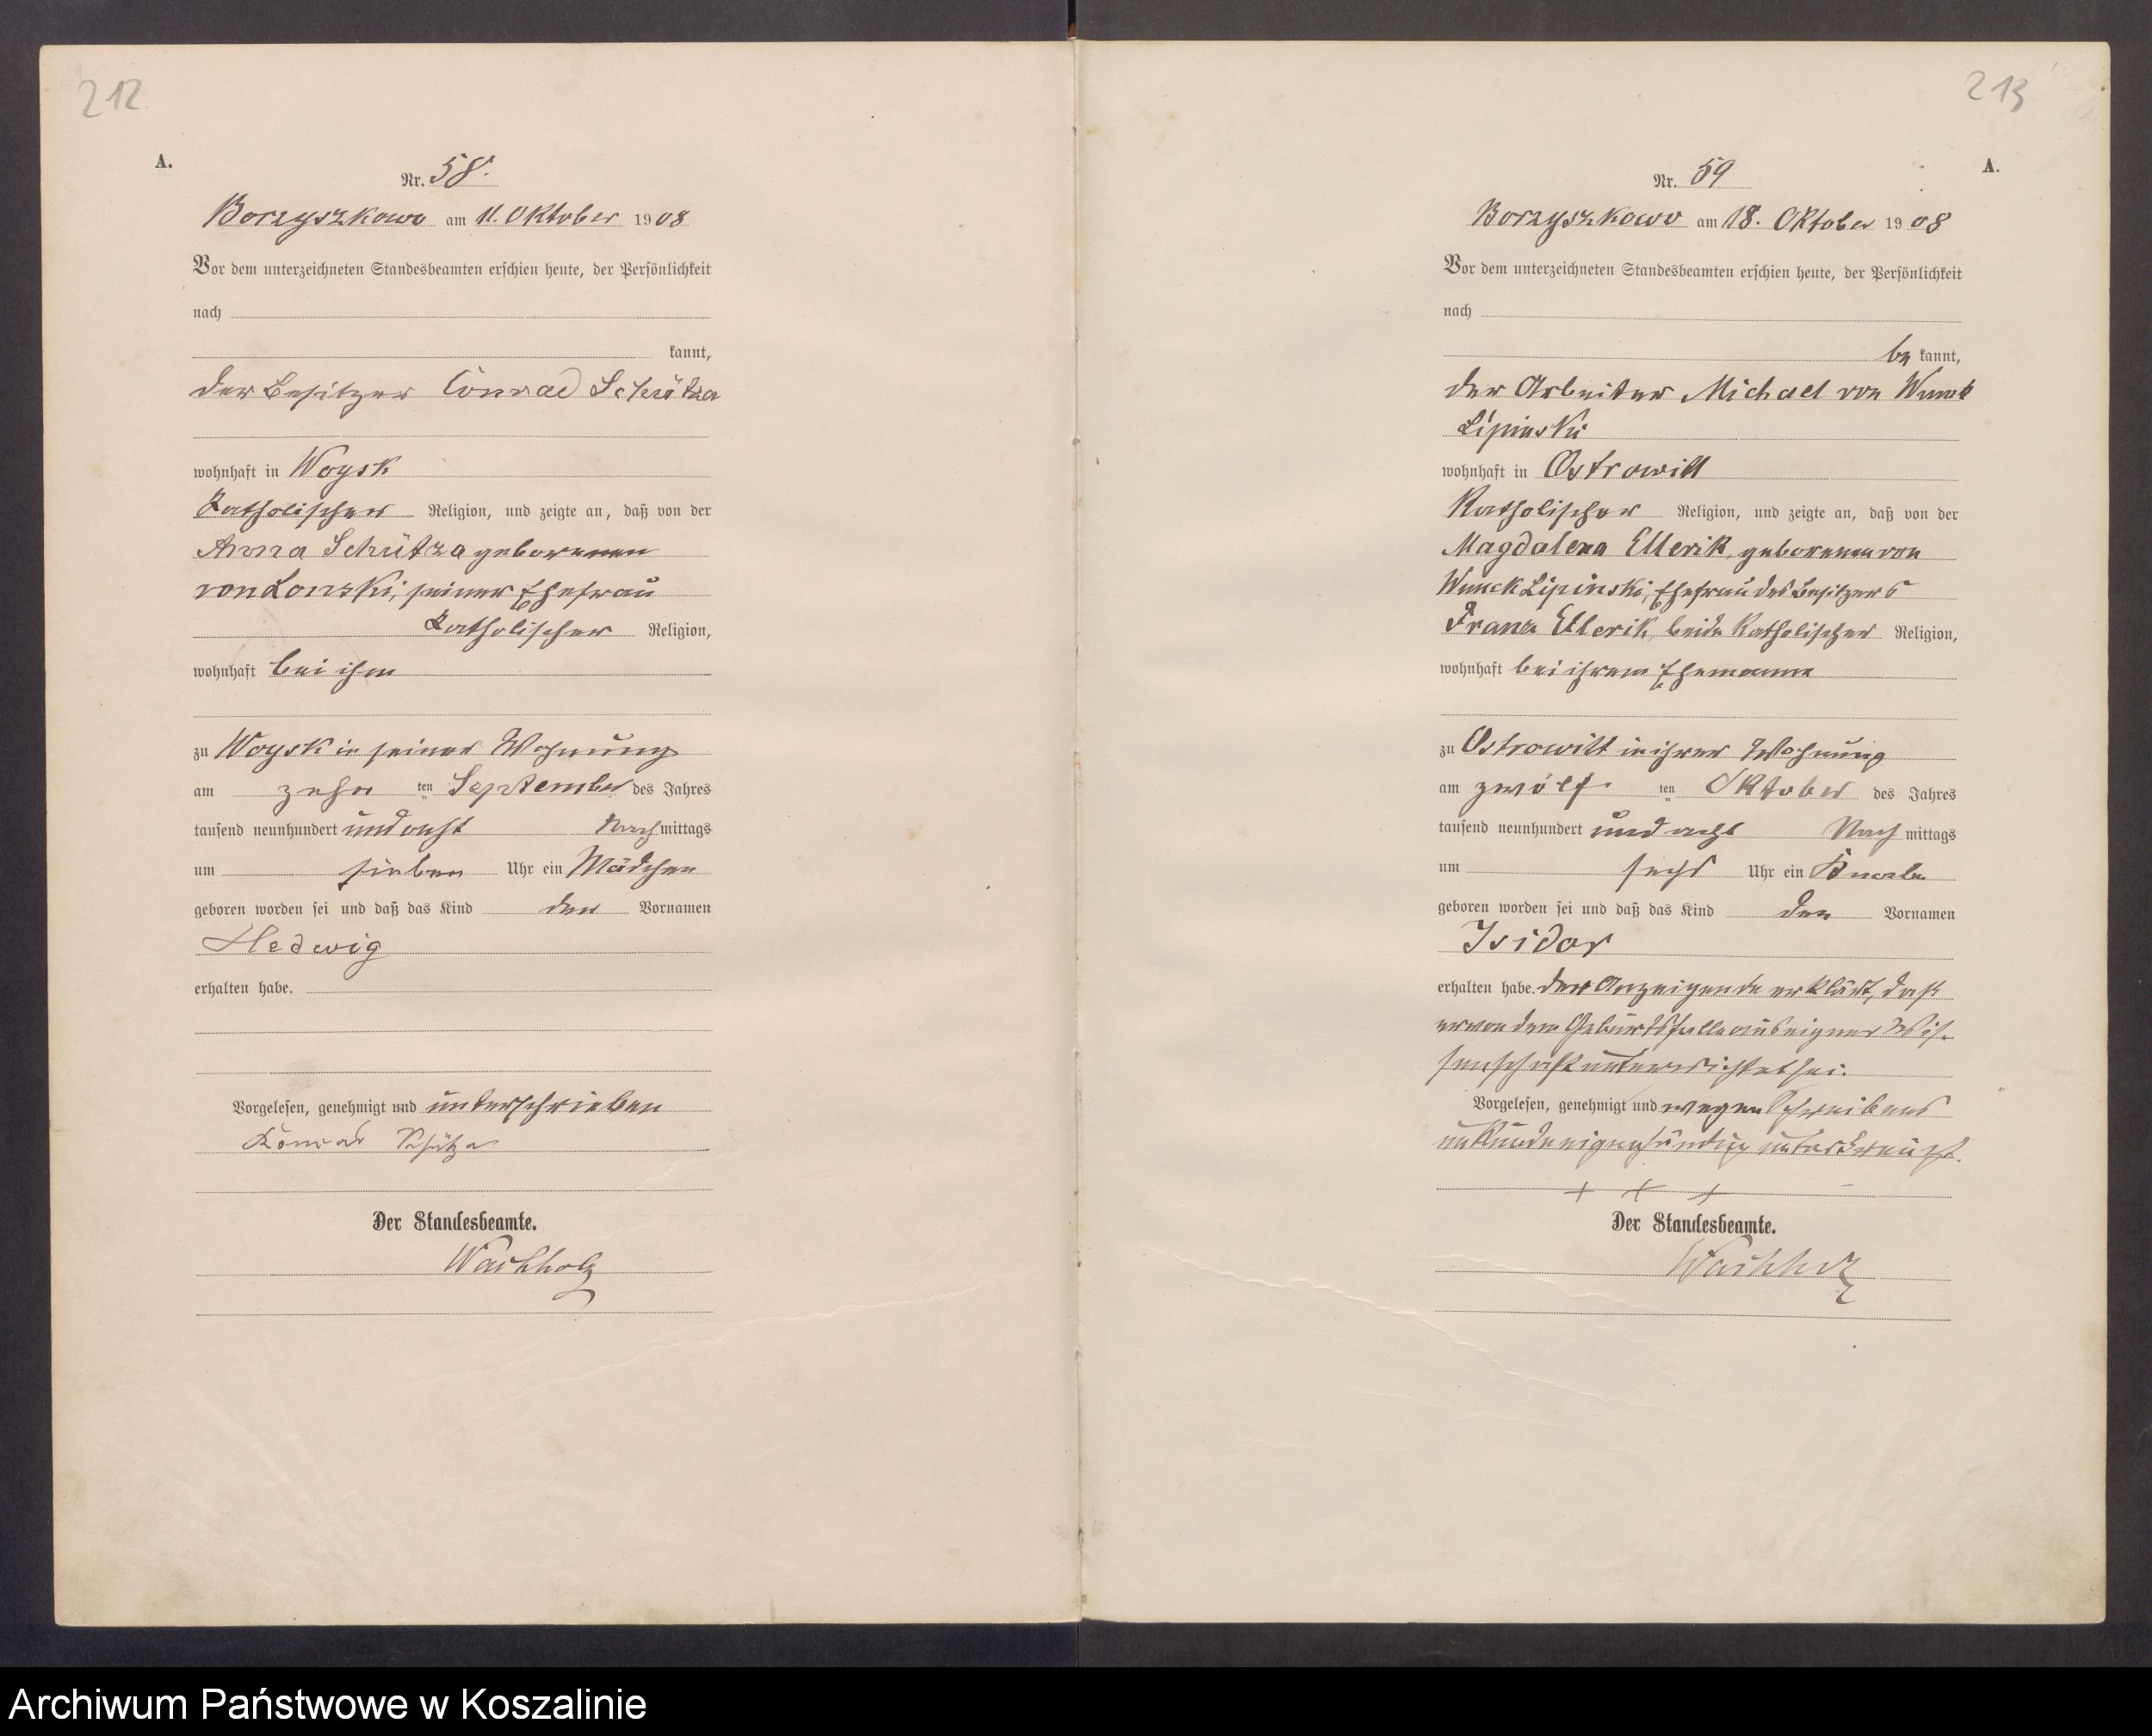 212
A.
Nr. 58.
Borzyszkowo am 11. Oktober 1908
Vor dem unterzeichneten Standesbeamten erschien heute, der Persönlichkeit
nach
kannt,
der Besitzer Conrad Schütza
wohnhaft in Woysk
Katholischer Religion, und zeigte an, daß von der
Anna Schütza geborenen
von Lonski, seiner Ehefrau
Katholischer Religion,
wohnhaft bei ihm
zu Woysk in seiner Wohnung
am zehn ten September des Jahres
tausend neunhundert und acht Nachmittags
um sieben Uhr ein Mädchen
geboren worden sei und daß das Kind den Vornamen
Hedwig
erhalten habe.
Vorgelesen, genehmigt und unterschrieben
Konrad Schütza
Der Standesbeamte.
Wachholz
213
A.
Nr. 59
Borzyszkowo am 18. Oktober 1908
Vor dem unterzeichneten Standesbeamten erschien heute, der Persönlichkeit
nach
be kannt,
der Arbeiter Michael von Wnuck
Lipinski
wohnhaft in Ostrowitt
Katholischer Religion, und zeigte an, daß von der
Magdalena Ellerik, geborenen von
Wnuck Lipinski, Ehefrau des Besitzers
Franz Ellerik, beide Katholischer Religion,
wohnhaft bei ihrem Ehemanne
zu Ostrowitt in ihrer Wohnung
am zwölf ten Oktober des Jahres
tausend neunhundert und acht Nach mittags
um sechs Uhr ein Knabe
geboren worden sei und daß das Kind den Vornamen
Isidor
erhalten habe. der Anzeigende erklärt, daß
er von dem Geburtsfalle aus eigner Wis-
senschaft unterrichtet sei.
Vorgelesen, genehmigt und wegen Schreibens
unkunde eigenhändig unterkreuzt.
+ + +
Der Standesbeamte.
Wachholz
Archiwum Państwowe w Koszalinie